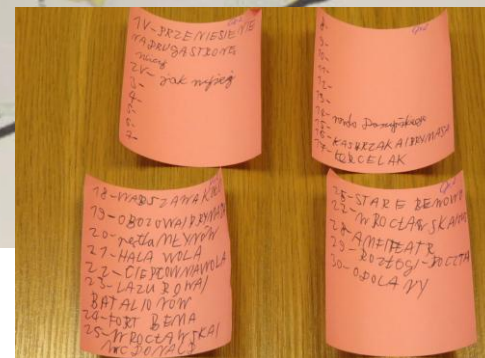 1V-PRZENIESIENIE
NA DRUGA STRONĘ
2V- jak wyżej
3-
4-
5-
6-
7-
8-
9-
10-
11-
12-
13-
14-
15-
16- KASPRZAKA/PRYMASA
17- KERCELAK
18-WARSZAWA KOŁO
19-OBOZOWA/PRYMASA
20-pętla MŁYNÓW
21-HALA WOLA
22-CIEPŁOWNIA WOLA
23-LAZUROWA/
BATALIONÓW
24-FORT BEMA
25-WROCŁAWSKA/
MCDONALD
26-STARE BEMOWO
27-WROCŁAWSKA
28-AMFITEATR
29-ROZŁOGI-POCZTA
30-ODOLANY